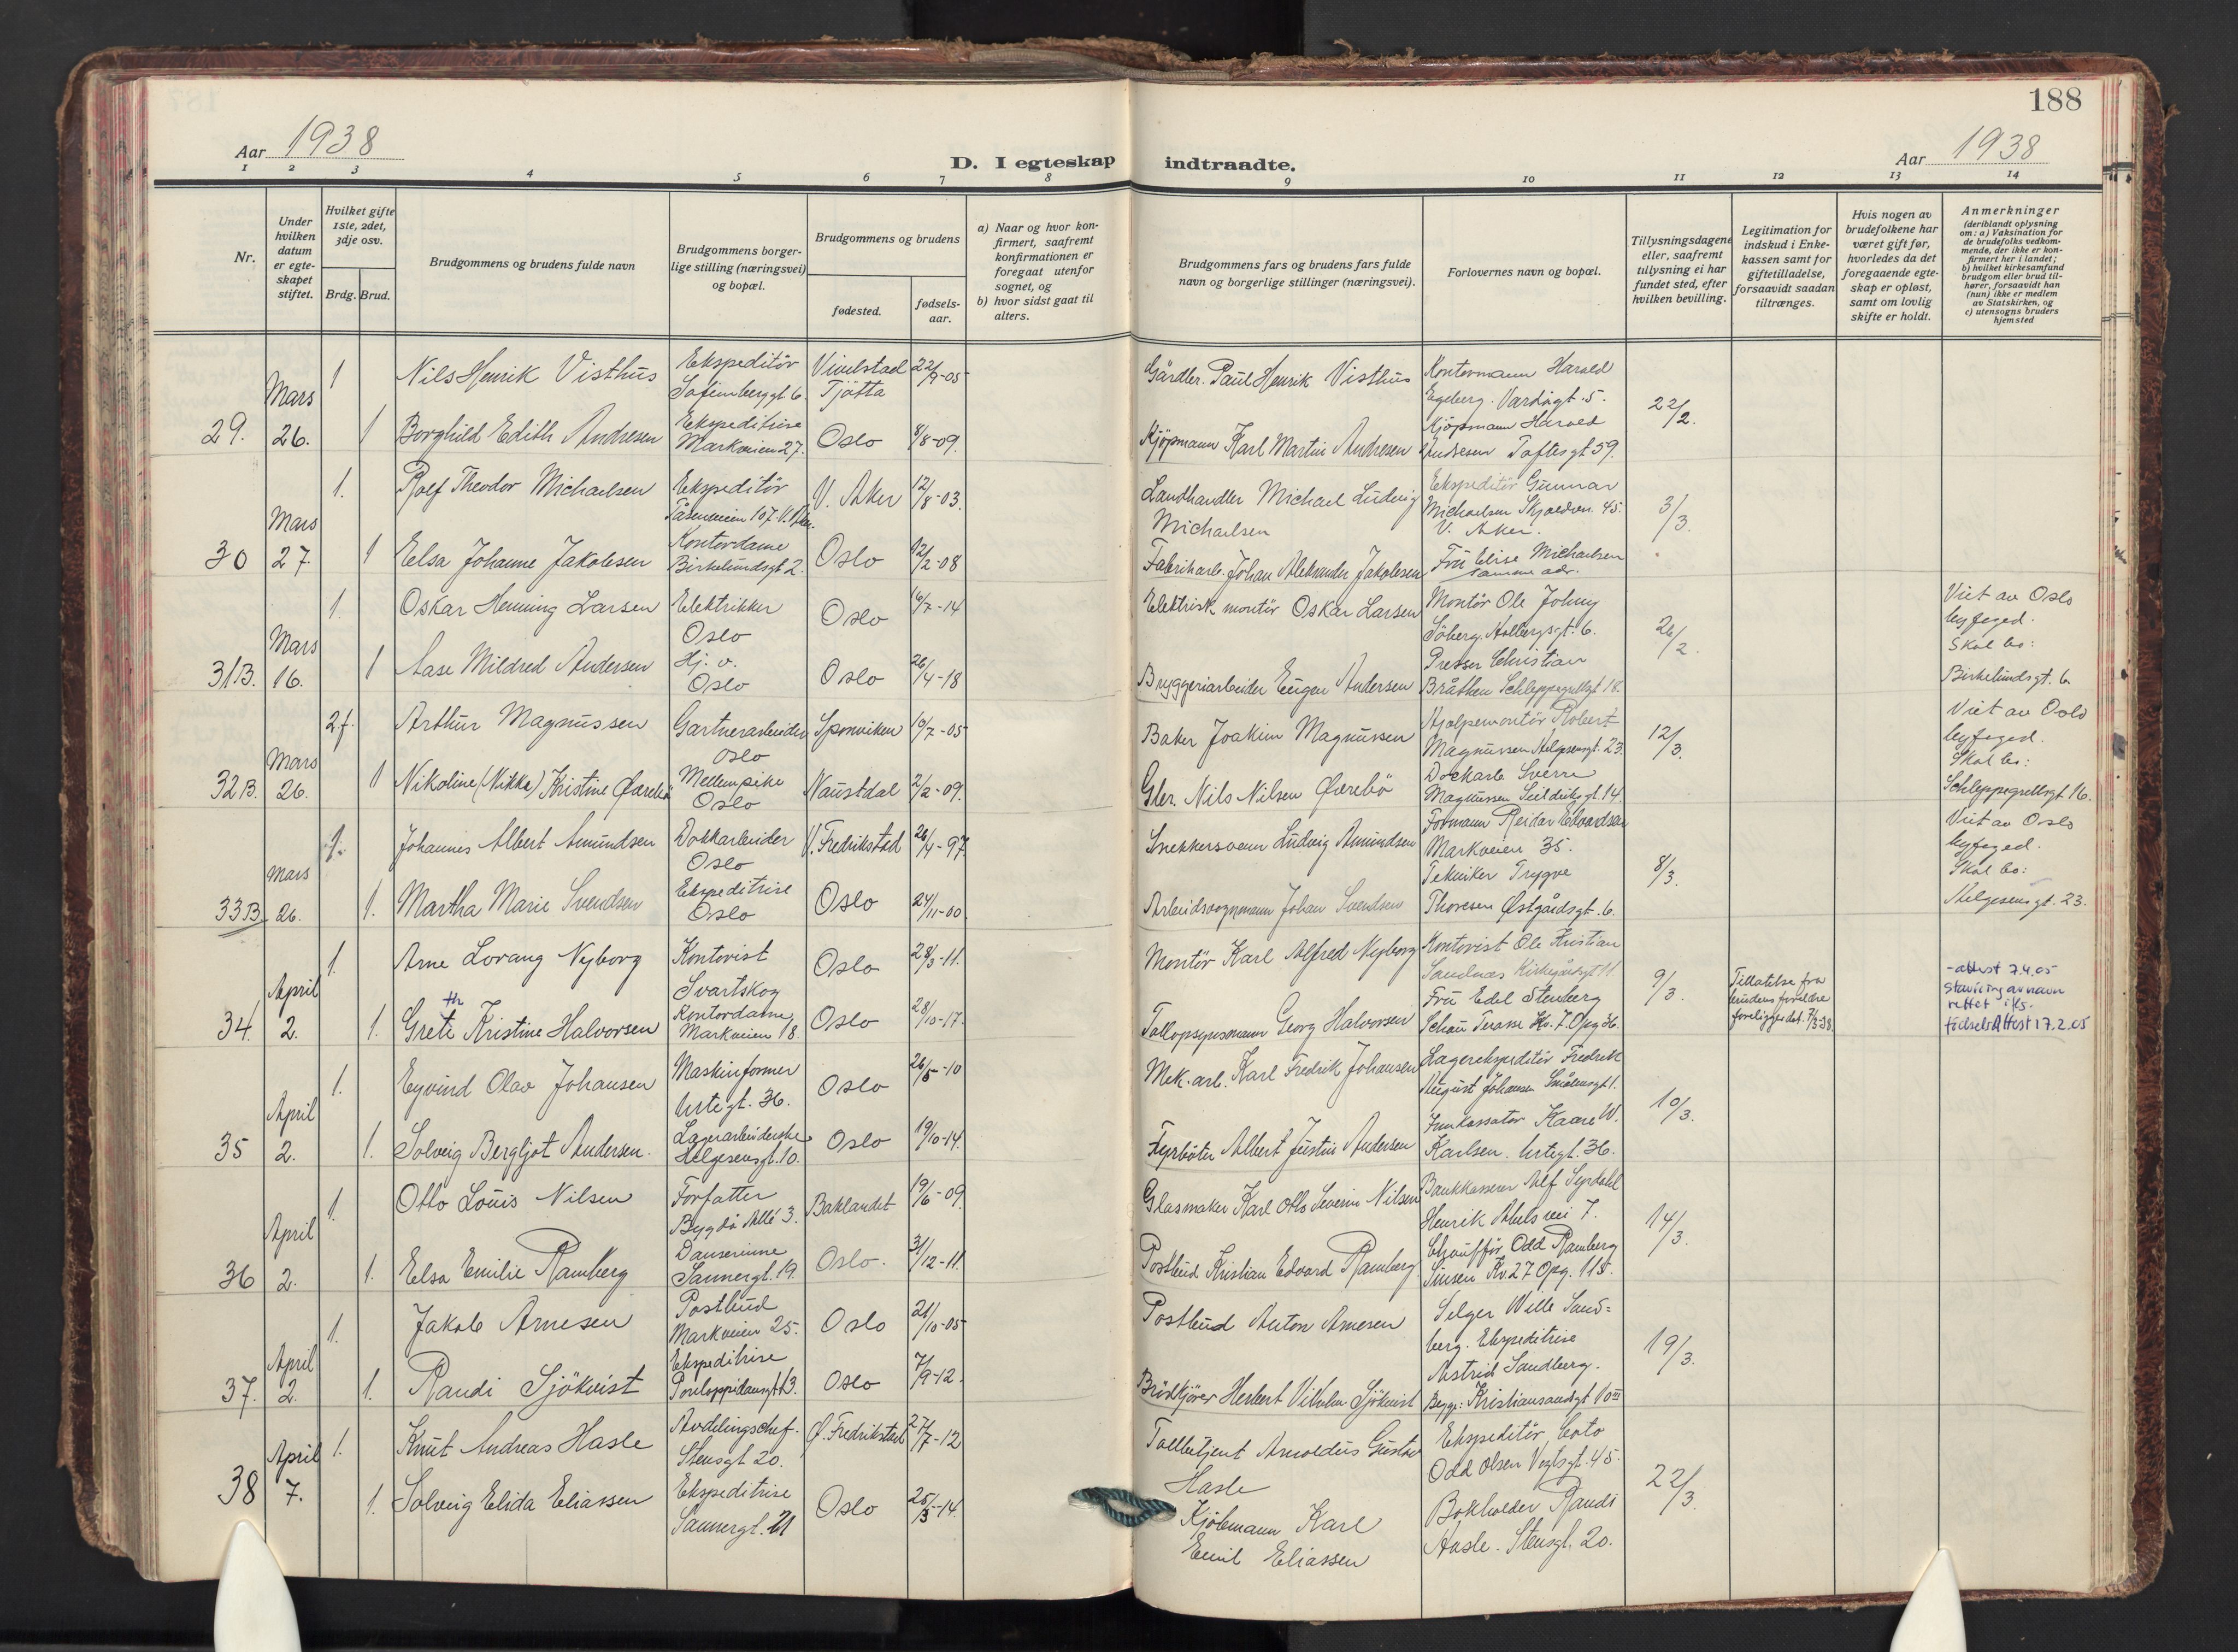 188
Aar 1938
D. I egteskap indtraadte.
Aar 1938
1 2 3 4 5 6 7 8 9 10 11 12 13 14
Nr.
Under hvilken datum er egteskapet stiftet.
Hvilket gifte 1ste, 2det, 3dje osv.
Brdg. Brud.
Brudgommens og brudens fulde navn
Brudgommens borgerlige stilling (næringsvei) og bopæl.
Brudgommens og brudens
fødested.
fødselsaar.
a) Naar og hvor konfirmert, saafremt konfirmationen er foregaat utenfor sognet, og
b) hvor sidst gaat til alters.
Brudgommens fars og brudens fars fulde navn og borgerlige stillinger (næringsvei).
Forlovernes navn og bopæl.
Tillysningsdagene eller, saafremt tillysning ei har fundet sted, efter hvilken bevilling.
Legitimation for indskud i Enkekassen samt for giftetilladelse, forsaavidt saadan tiltrænges.
Hvis nogen av brudefolkene har været gift før, hvorledes da det foregaaende egteskap er opløst, samt om lovlig skifte er holdt.
Anmerkninger
(deriblandt oplysning om: a) Vaksination for de brudefolks vedkommende, der ikke er konfirmert her i landet;
b) hvilket kirkesamfund brudgom eller brud tilhører, forsaavidt han (hun) ikke er medlem av Statskirken, og
c) utensogns bruders hjemsted
1 Nils Henrik Visthus Ekspeditör Sofienberggt 6. Tjøtta 22/9-05 Gårdbr. Paul Henrik Visthus Kontormann Harald Egeberg.
29. Mars 26. 1 Borghild Edith Andresen Ekspeditrise Markveien 27. Oslo 8/8-09. Kjöpmann Karl Martin Andresen Kjöpmann Harald Andresen Toftesgt 59. 22/2.
1. Rolf Theodor Michaelsen Ekspeditör Tåsenveien 107. V. Aker. V. Aker 12/8-03. Landhandler Michael Ludvig Michaelsen Ekspeditör Gunnar Michaelsen Skjoldvn. 45. V. Aker.
30 Mars 27. 1 Elsa Johanne Jakobsen Kontordame Birkelundsgt 2. Oslo 12/2-08 Fabrikarb. Johan Aleksander Jakobsen Fru Elise Michaelsen samme adr. 3/3.
1. Oskar Henning Larsen Elektrikker Oslo Oslo 16/7-14 Elektrisk montör Oskar Larsen Montör Ole Johny Söberg. Holbergsgt. 6.
31B. Mars 16. 1 Aase Mildred Andersen Hj. v. Oslo Oslo 26/4-18 Bryggeriarbeider Eugen Andersen Presser Christian Bråthen Schleppegrellsgt 18. 26/2. Viet av Oslo byfoged. Skal bo: Birkelundsgt. 6.
2.g. Arthur Magnussen Gartnerarbeider Oslo Sponviken 10/7-05 Baker Joakim Magnussen Hjelpemontör Robert Magnussen Helgesensgt. 23.
32B. Mars 26. 1 Nikoline (Nikka) Kristine Øverbö Mellempike Oslo Naustdal 2/2-09. Gbr. Nils Nilsen Øverbö Dockarb Sverre Magnussen Seilduksgt. 14. 12/3. Viet av Oslo byfoged. Skal bo: Schleppegrellsgt 16.
1. Johannes Albert Amundsen Dokkarbeider Oslo V. Fredrikstad 26/4-97 Snekkersvenn Ludvig Amundsen Formann Reidar Edvardsen Markveien 35.
33B Mars 26. 1. Martha Marie Svendsen Ekspeditrise Oslo Oslo 24/11-00. Arbeidsvognmann Johan Svendsen Tekniker Trygve Thoresen Østgårdsgt. 6. 8/3. Viet av Oslo byfoged. Skal bo: Helgesensgt. 23.
1. Arne Lorang Nyborg Kontorist Svartskog Oslo 28/3-11. Montör Karl Alfred Nyborg Kontorist Ole Kristian Sandnes Kirkegårdsgt 11
34. April 2. 1. Grete th Kristine Halvorsen Kontordame Markveien 18. Oslo 28/10-17. Tollopsynsmann Georg Halvorsen Fru Edel Stenberg Schau Terasse Kv. 7. Opg 36. 9/3. Tillatelse fra brudens foreldre foreligger dat. 7/3-38. - attest 7.4.05 staving av navn rettet iflg. fødselsattest 17.2.05
1. Eyvind Olav Johansen Maskinformer Urtegt. 36. Oslo 26/5-10 Mek. arb. Karl Fredrik Johansen Lagerekspeditör Fredrik August Johansen Smålensgt 1.
35 April 2. 1. Solveig Bergljot Andersen. Lagerarbeiderske Helgesensgt. 10. Oslo 19/10-14. Fyrböter Albert Justin Andersen Innkassator Kaare W. Karlsen. Urtegt. 36. 10/3.
1. Otto Louis Nilsen Forfatter Bygdö Allé 3. Baklandet 19/6-09. Glasmaker Karl Otto Severin Nilsen Bankkasserer Alf Syrdahl Henrik Ibsens vei 7.
36 April 2. 1. Elsa Emilie Ramberg Danserinne Sannergt. 19. Oslo. 31/12-11. Postbud Kristian Edvard Ramberg. Chaufför Odd Ramberg Sinsen Kv. 27 Opg. 115. 14/3.
1. Jakob Arnesen Postbud Markveien 25. Oslo 21/10-05 Postbud Anton Arnesen Selger Wille Sand=berg. Ekspeditrise
37. April 2. 1. Randi Sjökvist Ekspeditrise Oslo 7/9-12. Brödkjörer Herbert Vilhelm Sjökvist Astrid Sandberg. Begge: Kristiansandsgt 10 III 19/3.
1. Knut Andreas Hasle Avdelingschef. Stensgt 20. Ø. Fredrikstad 27/7-12 Tollbetjent Arnoldus Gustav Hasle Ekspeditör, Coto Odd Olsen Vogtsgt. 45.
38 April 7. 1. Solveig Elida Eliassen Ekspeditrise Sannergt. 21 Oslo 25/3-14. Kjöbmann Karl Emil Eliassen Bokholder Randi Hasle. Stensgt. 20. 22/3.